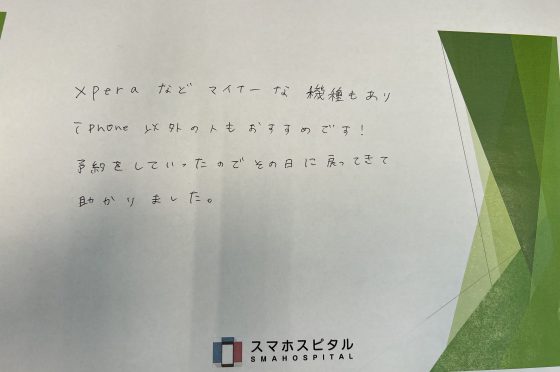 xperaなどマイナーな機種もあり
iPhone以外の人もおすすめです!
予約をしていったのでその日に戻ってきて
助かりました。
スマホスピタル
SMAHOSPITAL